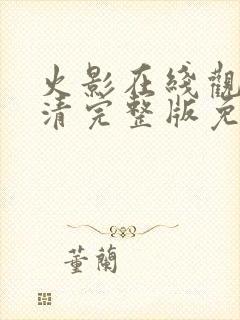 火影在綫觀
清完整版免
董蘭